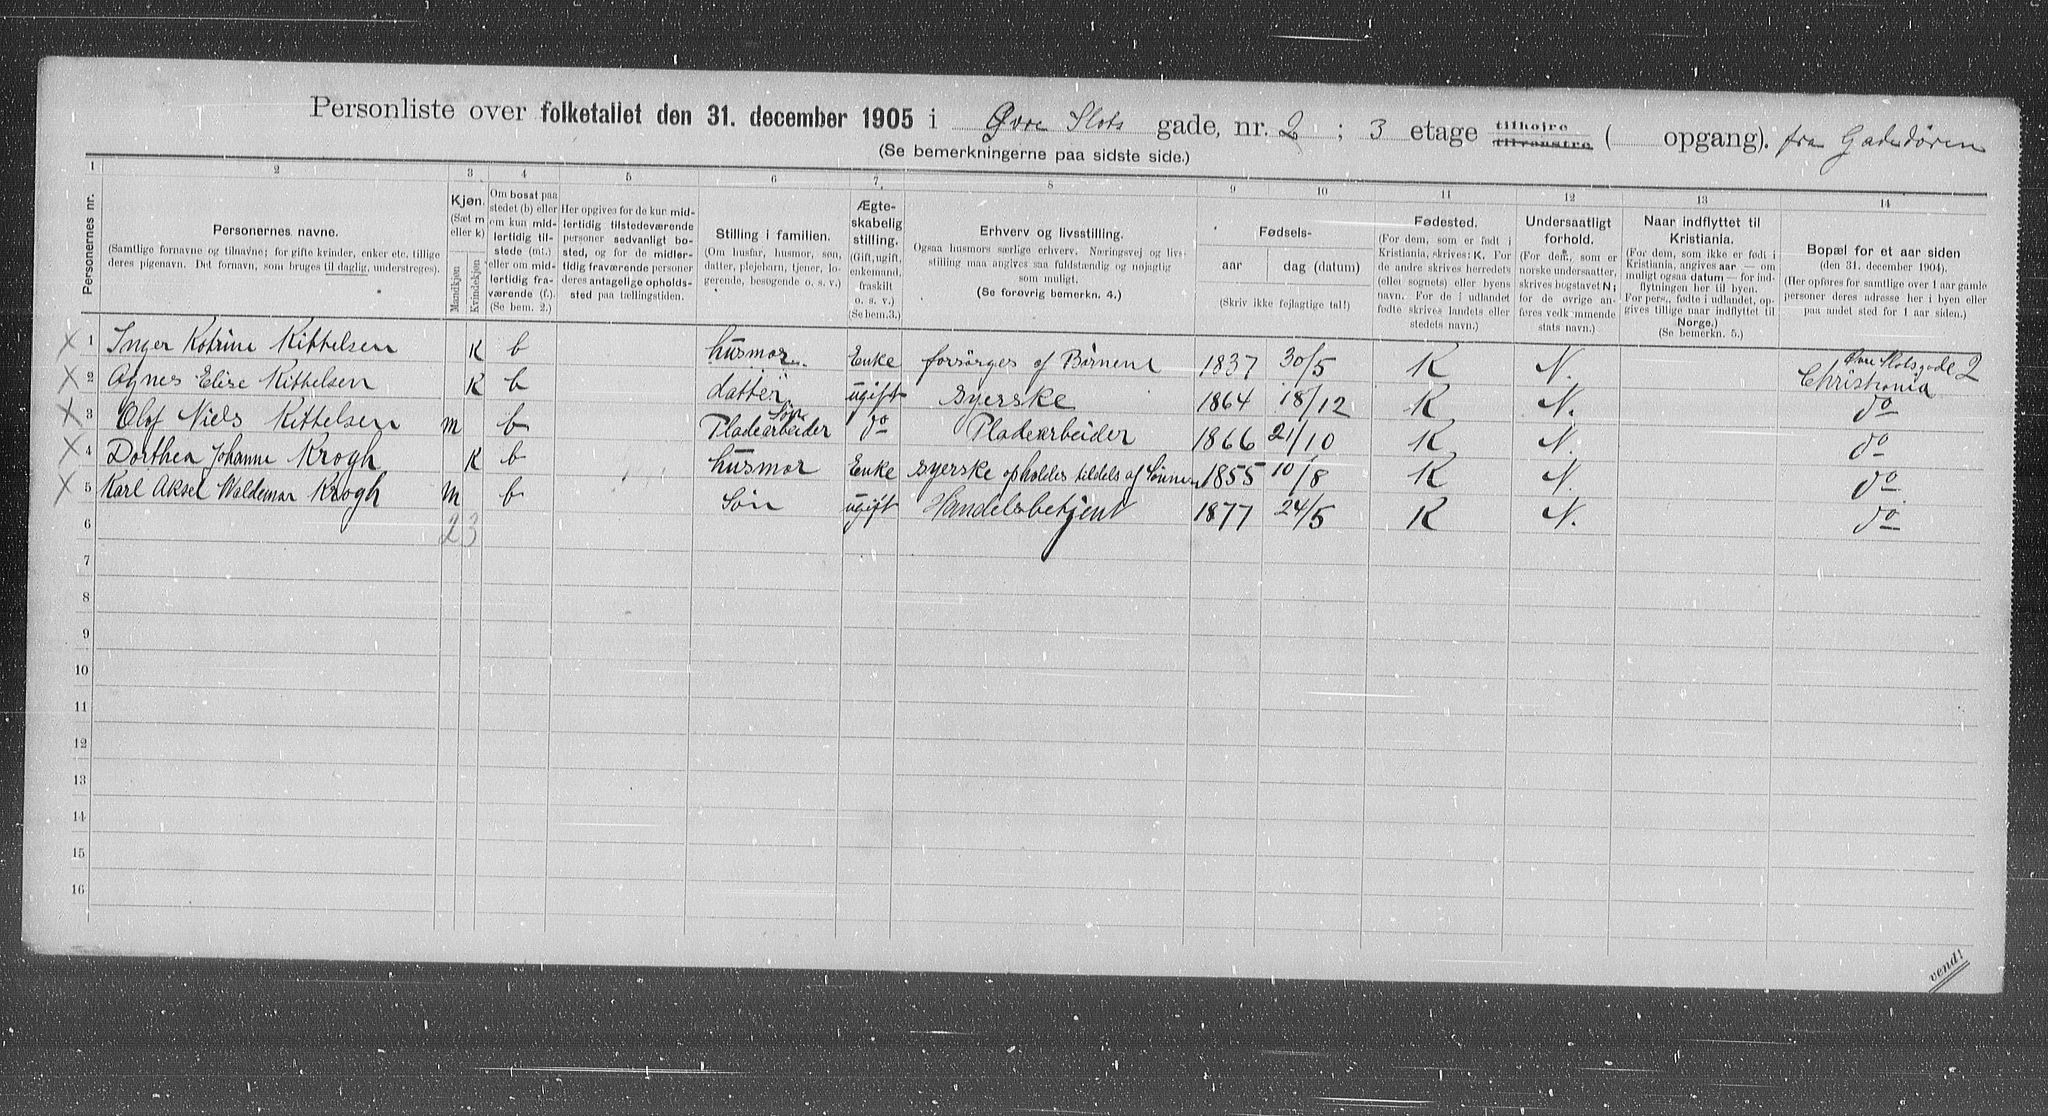 Personliste over folketallet den 31. december 1905 i Øvre Slots gade, nr. 2 ; 3 etage tilhøjre tilvenstre ( opgang). fra Gadedøren
(Se bemerkningerne paa sidste side.)
1 2 3 4 5 6 7 8 9 10 11 12 13 14
Personernes nr.
Personernes navne.
(Samtlige fornavne og tilnavne; for gifte kvinder, enker etc. tillige
deres pigenavn. Det fornavn, som bruges til daglig, understreges).
Kjøn.
(Sæt m
eller k)
Mandkjøn
Kvindekjøn
Om bosat paa
stedet (b) eller
om kun mid-
lertidig til-
stede (mt.)
eller om mid-
lertidig fra-
værende (f.).
(Se bem. 2.)
Her opgives for de kun mid-
lertidig tilstedeværende
personer sedvanlig bo-
sted, og for de midler-
tidig fraværende personer
deres antagelige opholds-
sted paa tællingstiden.
Stilling i familien.
(Om husfar, husmor, søn,
datter, plejebarn, tjener, lo-
gerende, besøgende o. s. v.)
Ægte-
skabelig
stilling.
(Gift, ugift,
enkemand,
fraskilt
o. s. v.)
(Se bem. 3.)
Erhverv og livsstilling.
Ogsaa husmors særlige erhverv. Næringsvej og livs-
stilling maa angives saa fuldstændig og nøjagtig
som muligt.
(Se forøvrig bemerkn. 4.)
Fødsels-
aar dag (datum)
(Skriv ikke fejlagtige tal!)
Fødested.
(For dem, som er født i
Kristiania, skrives: K. For
de andre skrives herredets
(eller sognets) eller byens
navn. For de i udlandet
fødte skrives landets eller
stedets navn.)
Undersaatligt
forhold.
(For dem, som er
norske undersaatter,
skrives bogstavet N;
for de øvrige an-
føres vedkommende
stats navn.)
Naar indflyttet til
Kristiania.
(For dem, som ikke er født i
Kristiania, angives aar — om
muligt ogsaa datum — for ind-
flytningen her til byen.
For pers., fødte i udlandet, op-
gives tillige naar indflyttet til
Norge.)
(Se bemerkn. 5.)
Bopæl for et aar siden
(den 31. december 1904).
(Her opføres for samtlige over 1 aar gamle
personer deres adresse her i byen eller
paa andet sted for 1 aar siden.)
X 1 Inger Katrine Kittelsen K b husmor Enke forsörges af Börnene 1837 30/5 K N. Øvre Slotsgade 2 Christiania
X 2 Agnes Elise Kittelsen K b datter ugift syerske 1864 18/12 K N. do
X 3 Olof Niels Kittelsen m b Søn Pladearbeider do Pladearbeider 1866 21/10 K N. do
X 4 Dorthea Johanne Krogh K b husmor Enke syerske opholdes tildels af Sønnen 1855 10/8 K N. do
X 5 Karl Aksel Waldemar Krogh m b Søn ugift Handelsbetjent 1877 24/5 K N. do
6 2 3
7
8
9
10
11
12
13
14
15
16
vend!